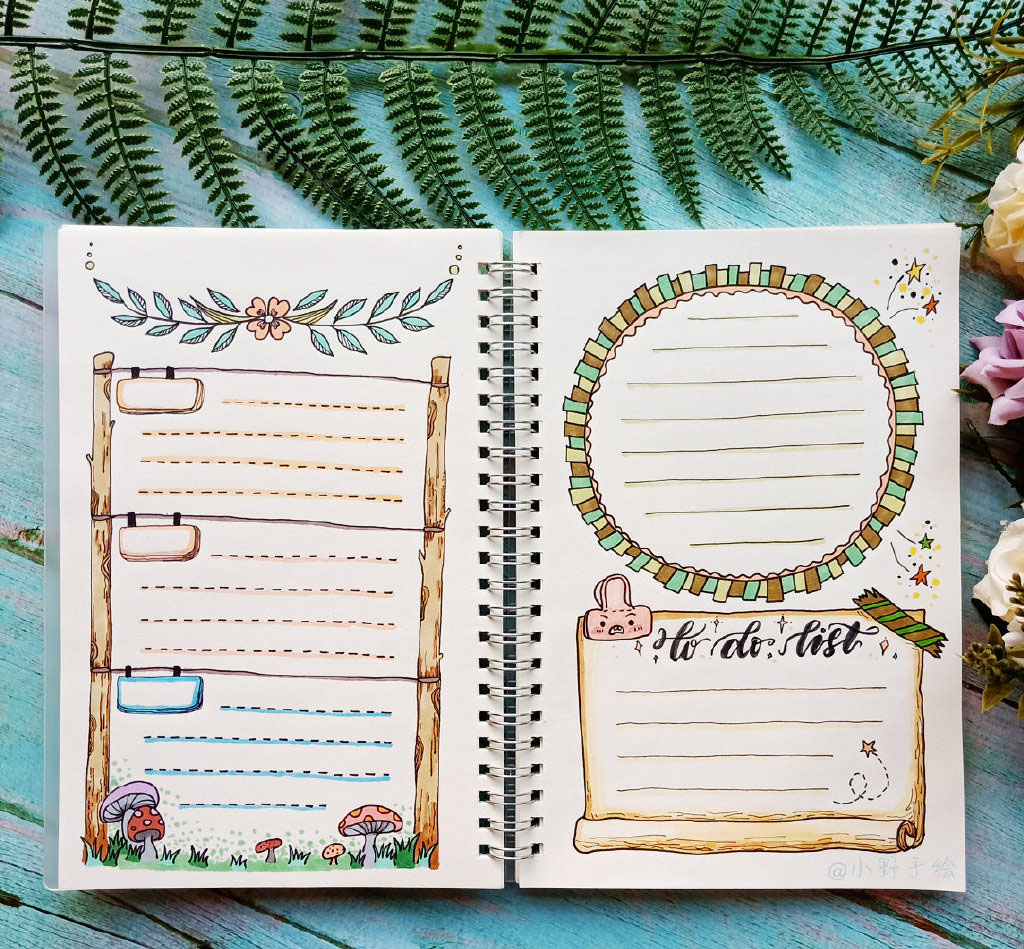 To do list
@小野手绘